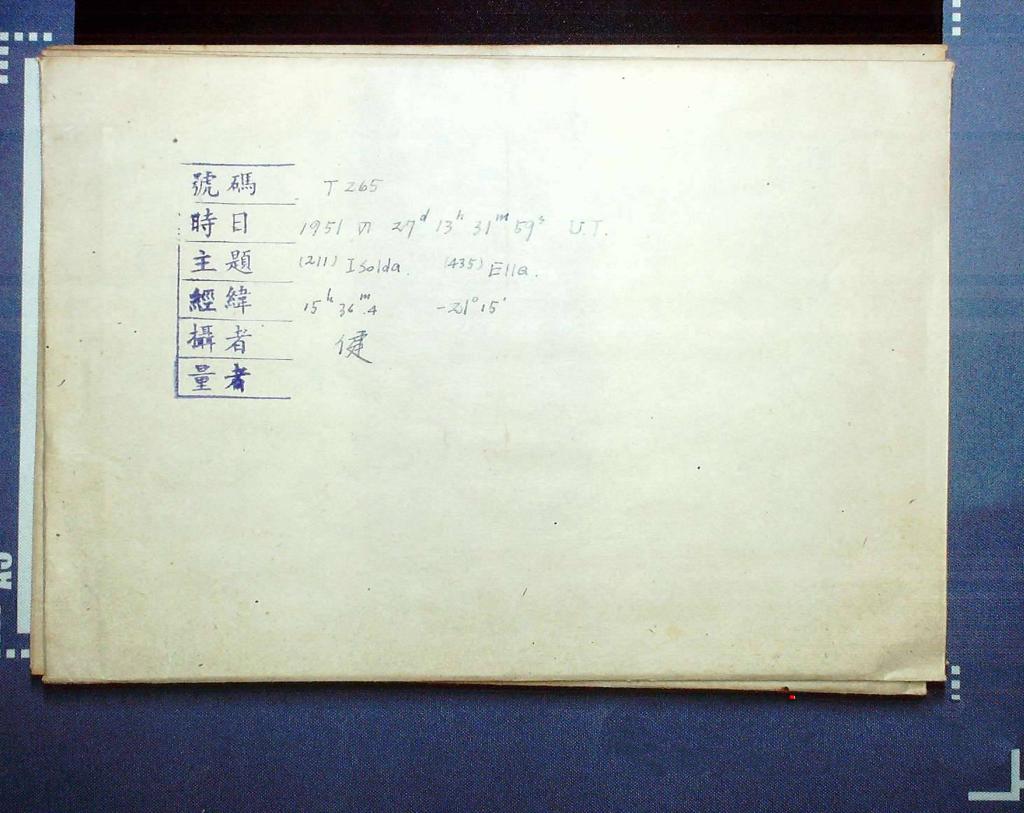 號碼 T 265
時日 1951 VI 27ᵈ 13ʰ 31ᵐ 59ˢ U.T.
主題 (211) Isolda. (435) Ella.
經緯 15ʰ 36ᵐ.4 -21°15′
攝者 健
量者